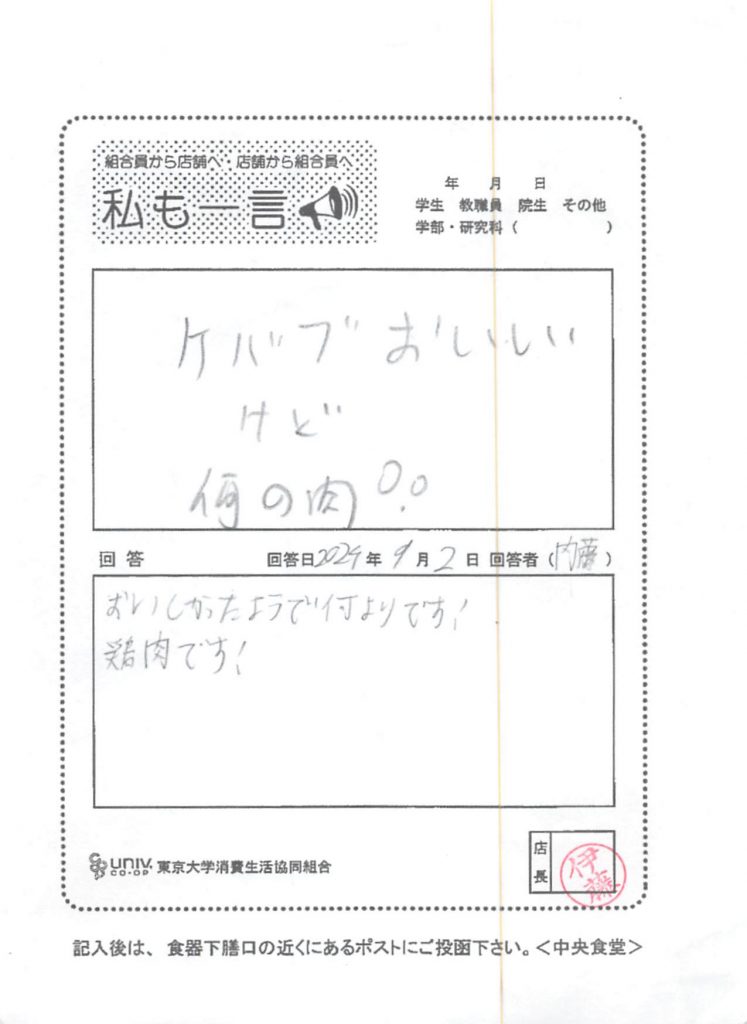 組合員から店舗へ・店舗から組合員へ
私も一言
年 月 日
学生 教職員 院生 その他
学部・研究科( )
ケバブおいしい
けど
何の肉??
回答 回答日2024年9月2日 回答者(内藤)
おいしかったようで何よりです!
鶏肉です!
UNIV. CO-OP 東京大学消費生活協同組合
店長
伊藤
記入後は、食器下膳口の近くにあるポストにご投函下さい。<中央食堂>